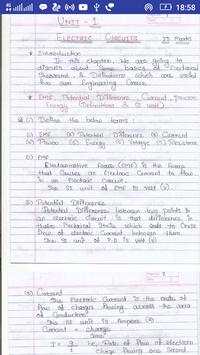 18:58
UNIT - 1
ELECTRIC CIRCUITS
Marks
* Introduction
In this chapter, We are going to
about Some basics of Electrical
& Definitions which are useful
for our Engineering
* EMF, Potential Difference, Current, Power
Energy (Definitions & SI unit)
Define the below terms:
(1) EMF (2) Potential Difference (3) Current
(4) Power (5) Energy (6) (7) Resistance
(1) EMF
Electromotive Force (EMF) is the Force
that Causes an Electric Current to flow
in an Electric Circuit.
The SI unit of EMF is Volt (V).
(2) Potential Difference
Potential Difference between two points in
an electric circuit is that difference in
their Electrical State which tends to Cause
flow of electric Current between them.
The SI unit of P.D is Volt (V)
(3) Current
The Electric Current is the rate of
flow of charges Passing across the area
of Conductor.
The SI unit is Ampere (A)
Current = charge
Time
i.e., Rate of flow of electrons
charge Passing one Second